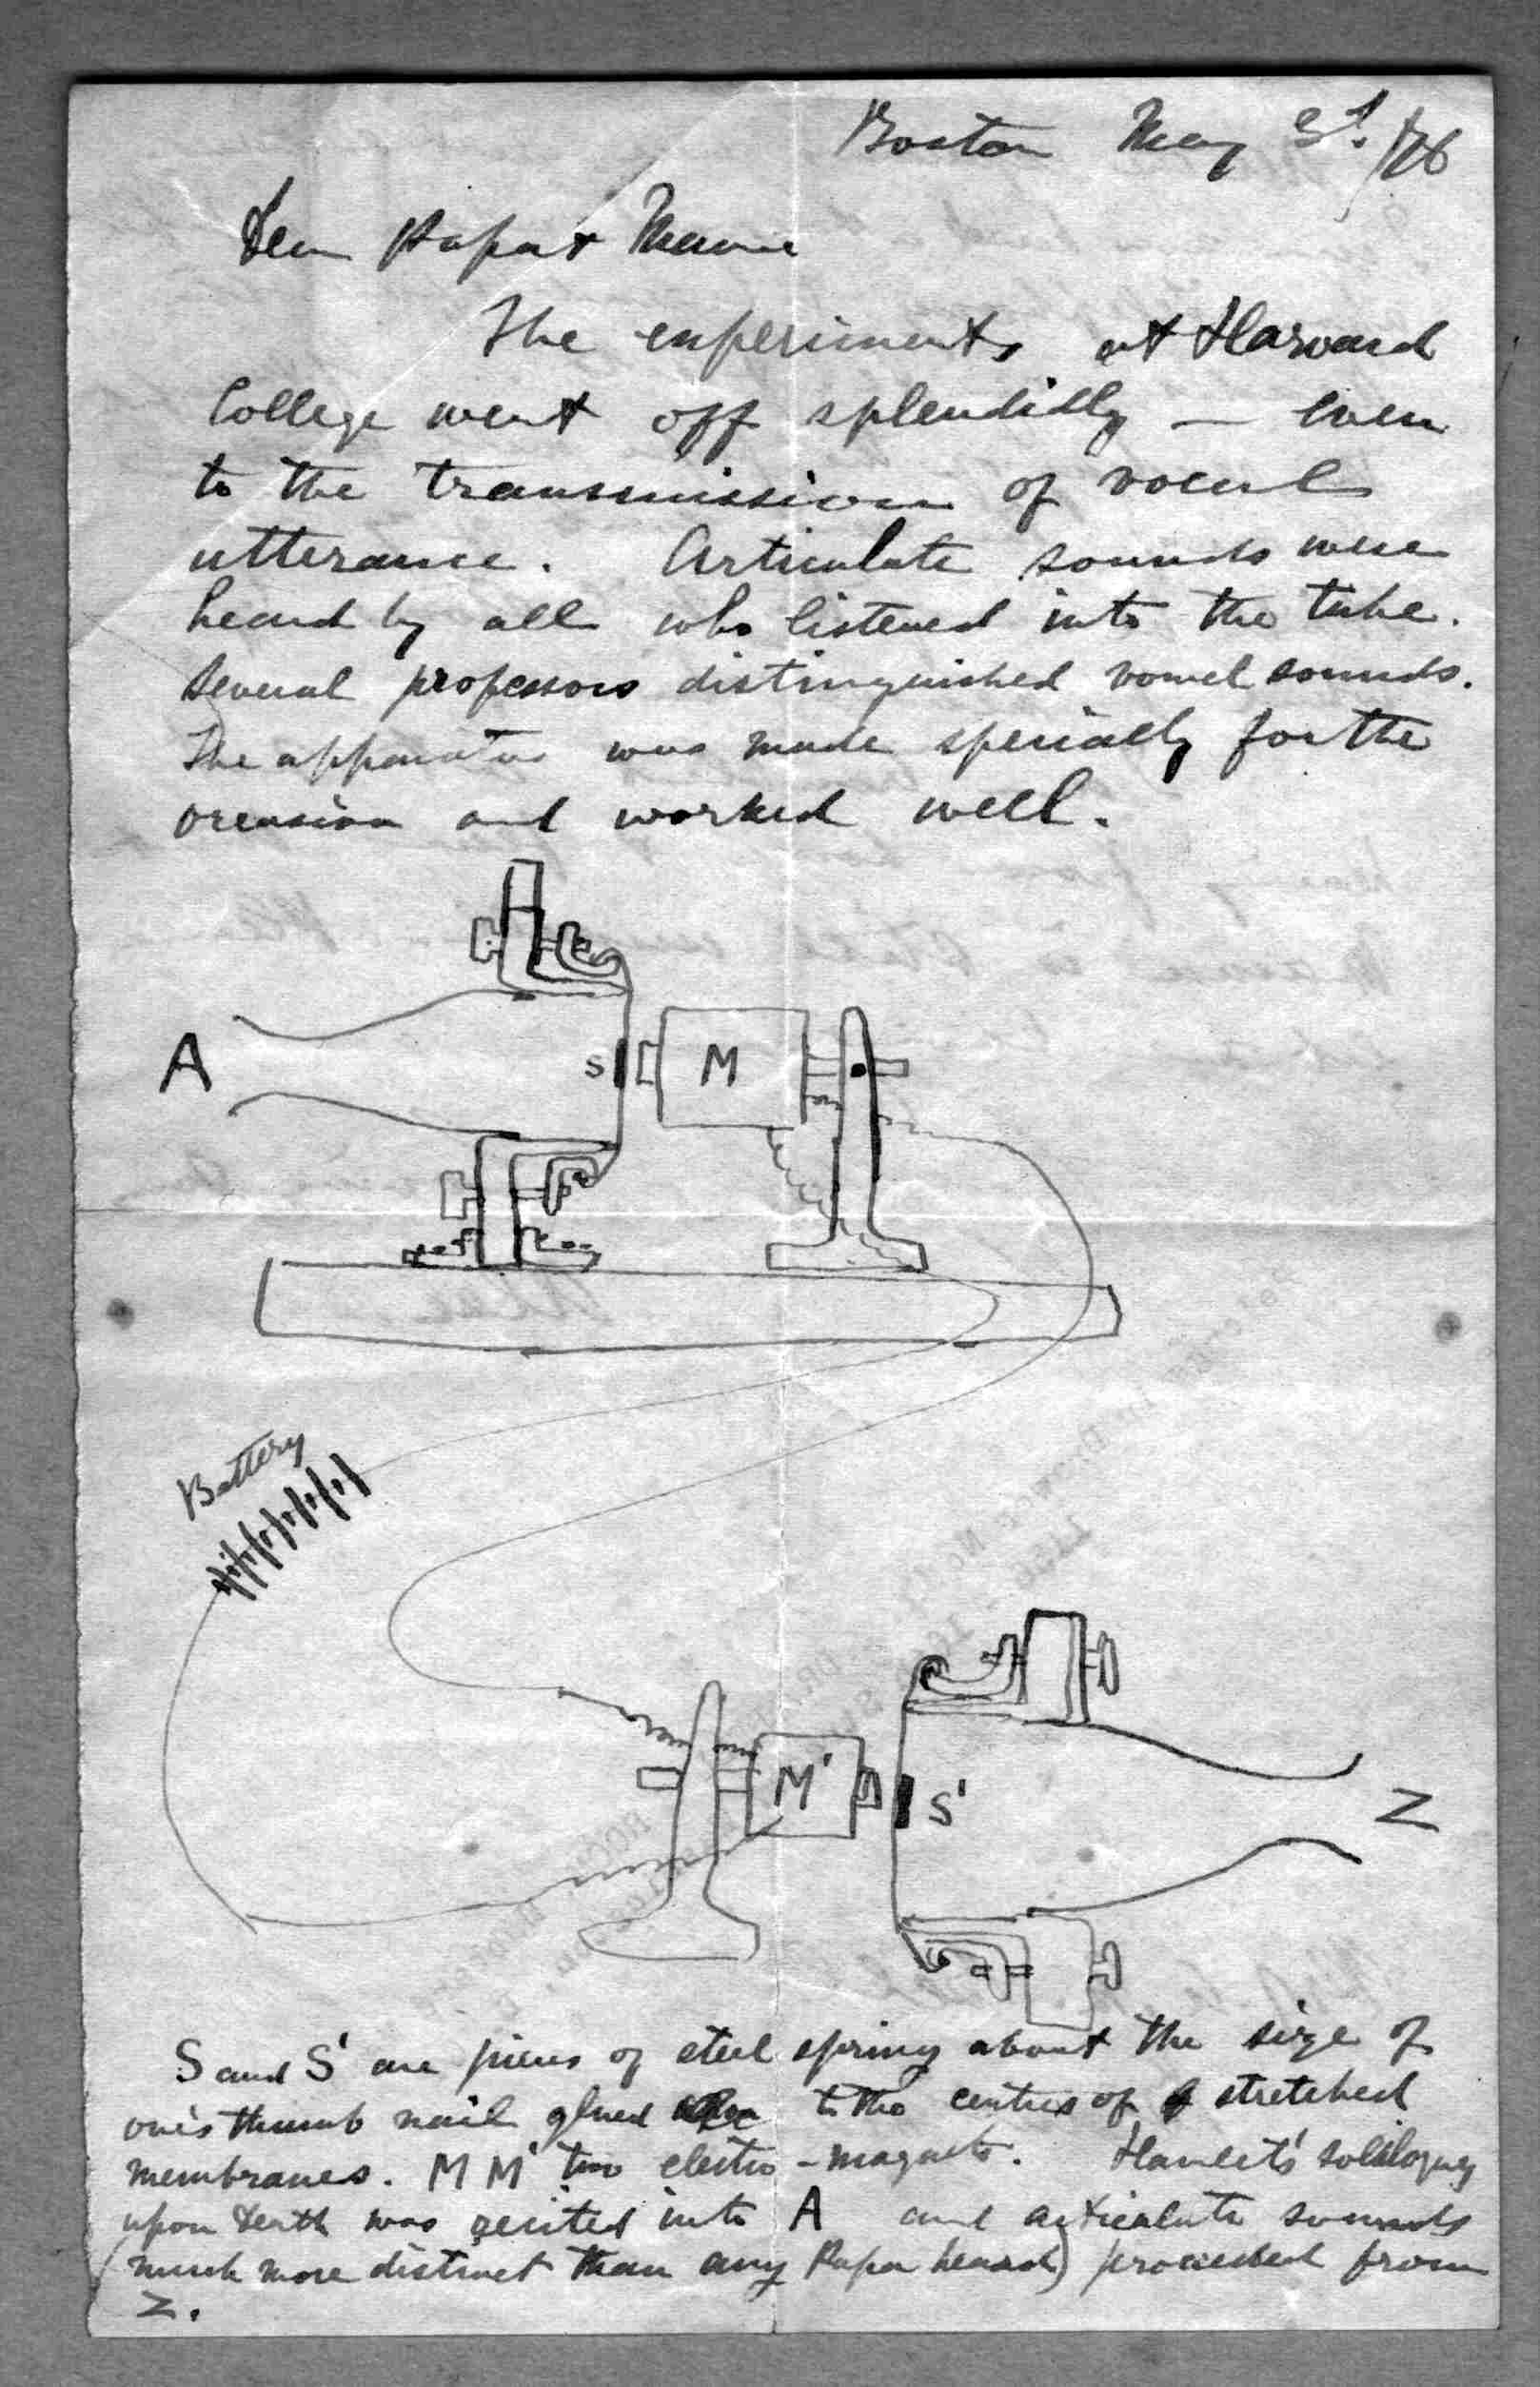 Boston May 3d. /76
Dear Papa & Mama
The experiments at Harvard
College went off splendidly — even
to the transmission of vocal
utterance. Articulate sounds were
heard by all who listened into the tube.
Several professors distinguished vowel sounds.
The apparatus was made specially for the
occasion and worked well.
A
S
M
Battery
M'
S'
Z
S and S' are pieces of steel spring about the size of
one's thumb nail glued to the centres of stretched
membranes. M M' two electro-magnets. Hamlet's soliloquy
upon death was recited into A and articulate sounds
(much more distinct than any Papa heard) proceeded from
Z.